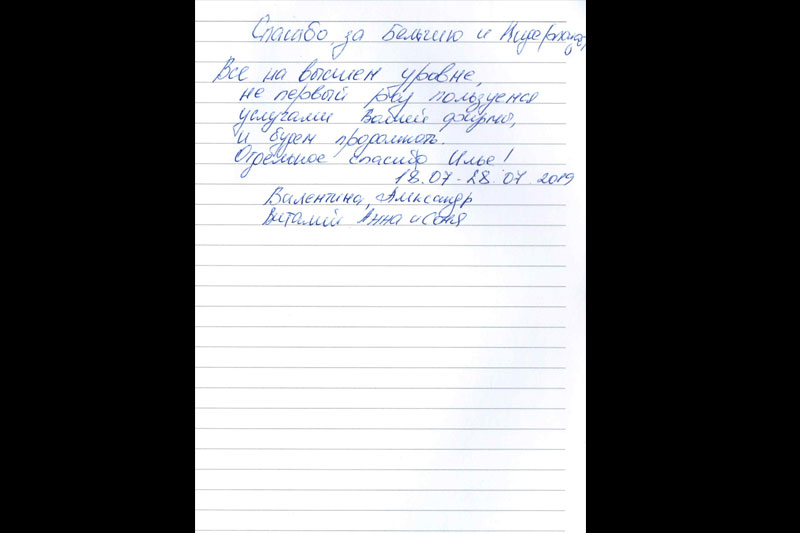 Спасибо за Бельгию и Нидерланды,
Все на высшем уровне,
не первый раз пользуемся
услугами Вашей фирмы,
и будем продолжать.
Огромное спасибо Илье!
18.07-28.07.2019
Валентина, Александр
Виталий Анна и Соня